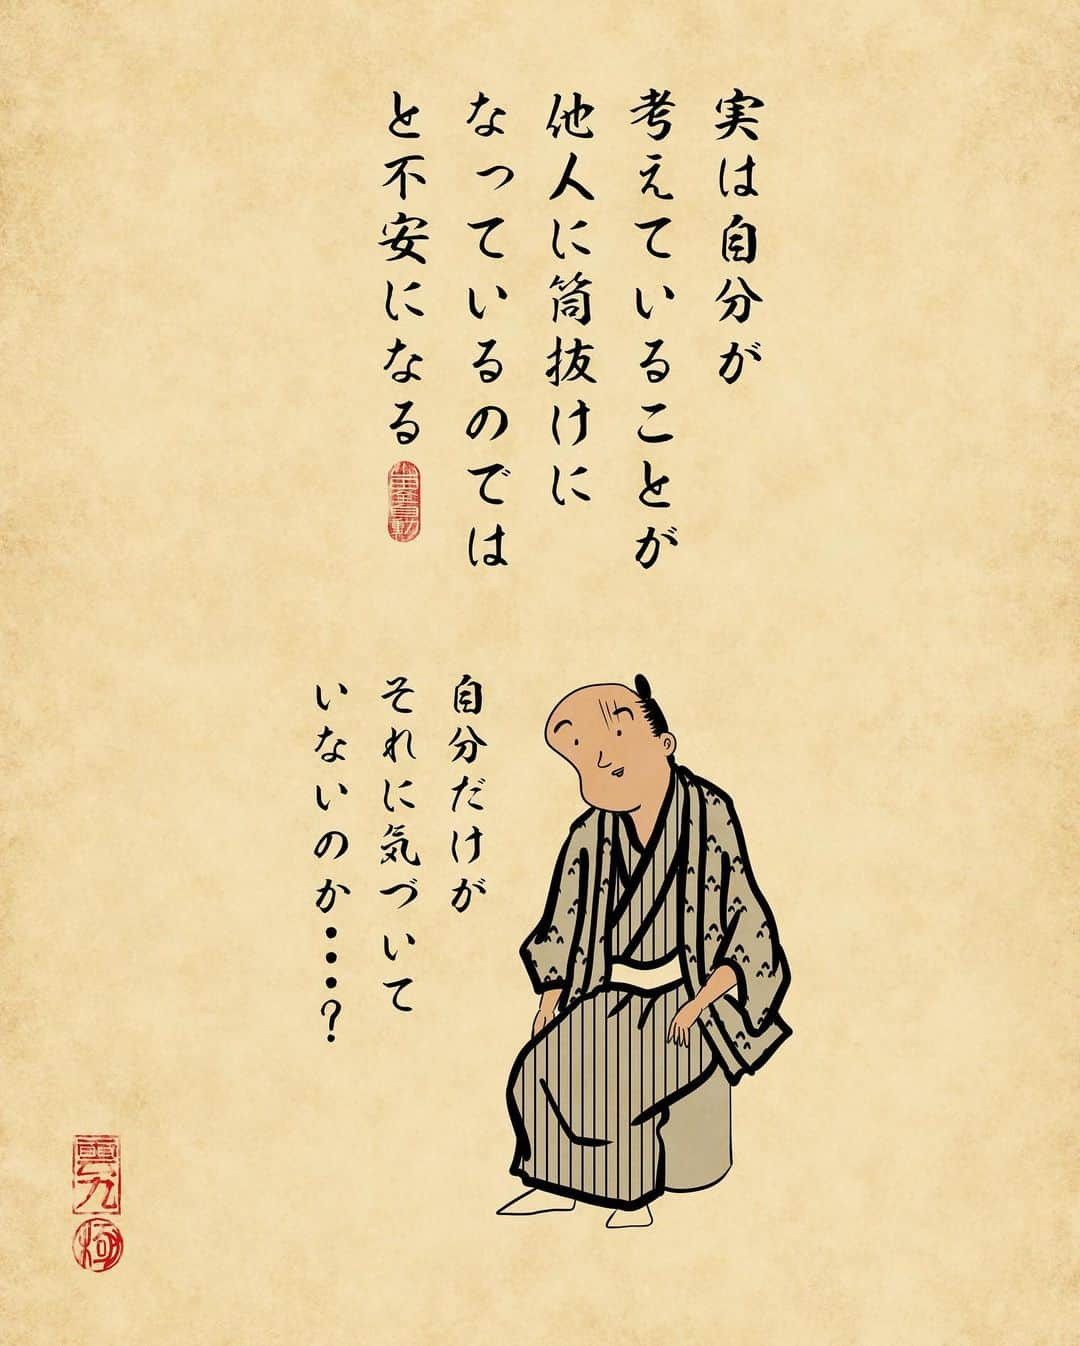 実は自分が
考えていることが
他人に筒抜けに
なっているのでは
と不安になる
自分だけが
それに気づいて
いないのか・・・？
雲九
極